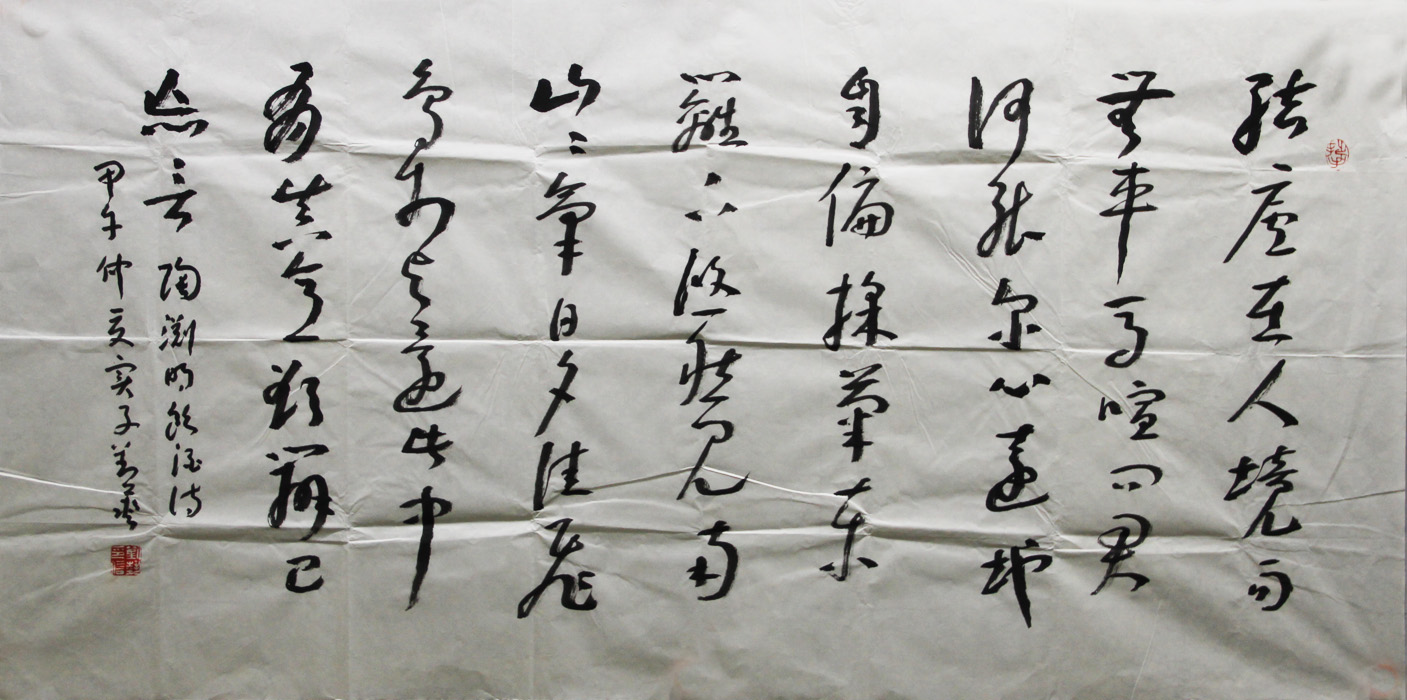 結廬在人境而
無車馬喧問君
何能爾心遠地
自偏採菊東
籬下悠然見南
山〻氣日夕佳飛
鳥相与還此中
有真意欲辨已
忘言 陶淵明飲酒詩
甲午仲夏